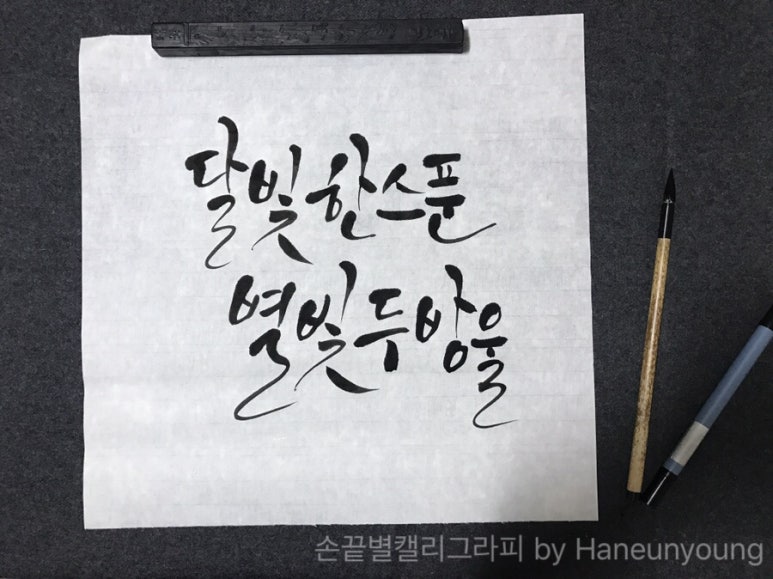 달빛 한스푼
별빛 두방울
손끝별캘리그라피 by Haneunyoung